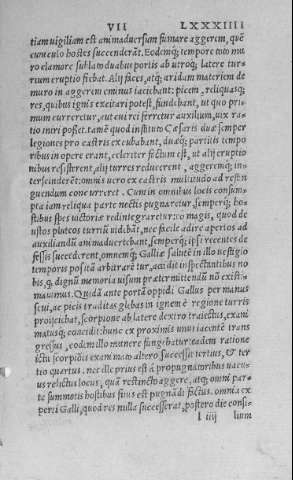 VII LXXXIIII
tiam uigiliam est animaduersum fumare aggerem, quē
cuniculo hostes succenderāt. Eodemq; tempore toto mu
ro clamore sublato duabus portis ab utroq; latere tur-
rium eruptio fiebat. Alij faces, atq; aridam materiem de
muro in aggerem eminus iaciebant: picem, reliquasq;
res, quibus ignis excitari potest, fundebant, ut quo pri-
mum curreretur, aut cui rei ferretur auxilium, uix ra-
tio iniri posset. tamē quod instituto Cæsaris duæ semper
legiones pro castris excubabant, duæq; partitis tempo
ribus in opere erant, celeriter factum est, ut alij eruptio
nibus resisterent, alij turres reducerent, aggeremq; in-
terscinderēt: omnis uero ex castris multitudo ad restin
guendum concurreret. Cum in omnibus locis consum-
pta iam reliqua parte noctis pugnaretur, semperq; ho-
stibus spes uictoriæ redintegraretur: eo magis, quod de
ustos pluteos turriū uidebāt, nec facile adire apertos ad
auxiliandū animaduertebant, semperq; ipsi recentes de
fessis succederent, omnemq; Galliæ salutē in illo uestigio
temporis positā arbitrarētur, accidit inspectantibus no
bis, q; dignū memoria uisum prætermittendū nō existi-
mauimus. Quidā ante portā oppidi Gallus per manus
seui, ac picis traditas glebas in ignem è regione turris
proijciebat, scorpione ab latere dextro traiectus, exani
matusq; concidit: hunc ex proximis unus iacentē trans
gressus, eodem illo munere fungebatur: eadem ratione
ictu scorpionis exanimato altero successit tertius, & ter
tio quartus. nec ille prius est à propugnatoribus uacu-
us relictus locus, quā restincto aggere, atq; omni par-
te summotis hostibus finis est pugnādi factus. omnia ex
perti Galli, quod res nulla successerat, postero die consi-
l iiij lium